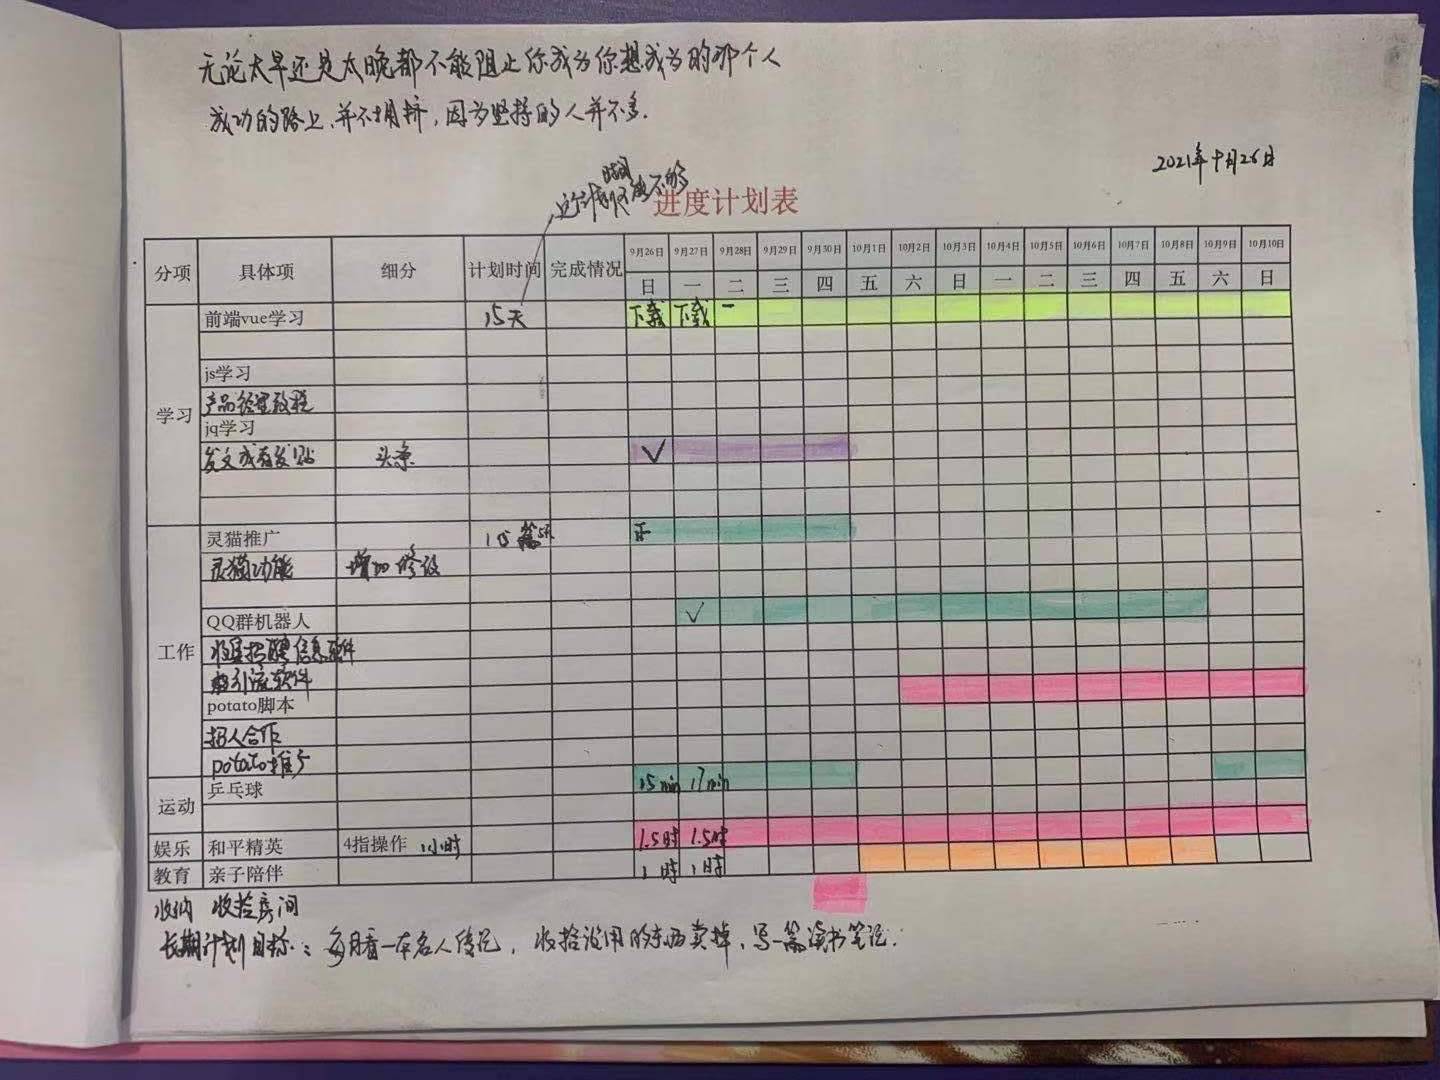 无论太早还是太晚都不能阻止你成为你想成为的那个人
成功的路上,并不拥挤,因为坚持的人并不多.
2021年9月26日
这个计划时间 不够
进度计划表
分项 具体项 细分 计划时间 完成情况 9月26日 9月27日 9月28日 9月29日 9月30日 10月1日 10月2日 10月3日 10月4日 10月5日 10月6日 10月7日 10月8日 10月9日 10月10日
日 一 二 三 四 五 六 日 一 二 三 四 五 六 日
学习 前端vue学习 15天 下载 下载
js学习
产品经理教程
jq学习
发文或者发贴 头条 ✓
工作 灵猫推广 15篇 5天 正
灵猫功能 增加修改
QQ群机器人 ✓
收集招聘信息软件
引流软件
potato脚本
招人合作
potato推广
运动 乒乓球 15min 17min
娱乐 和平精英 4指操作 1小时 1.5时 1.5时
教育 亲子陪伴 1时 1时
收纳 收拾房间
长期计划目标: 每月看一本名人传记, 收拾没用的东西卖掉, 写一篇读书笔记.